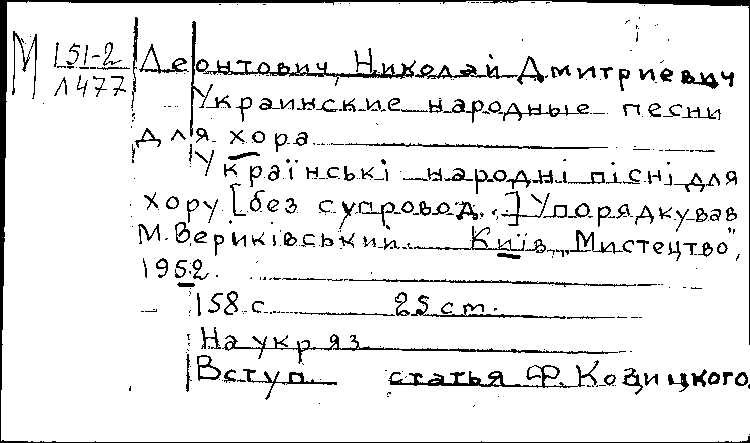 М 151-2 Леонтович, Николай Дмитриевич
Л477
Украинские народные песни
для хора
Українські народні пісні для
хору [без супровод..] Упорядкував
М. Вериківський. Київ, „Мистецтво",
1952.
158 с 25 ст.
На укр яз
Вступ. статья Ф. Козицкого.